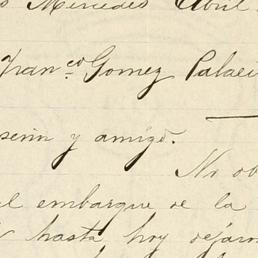 Mercedes Abril
Franco Gomez Palaci
y amigo.
No ob
el embarque de la
hasta hoy dejaro